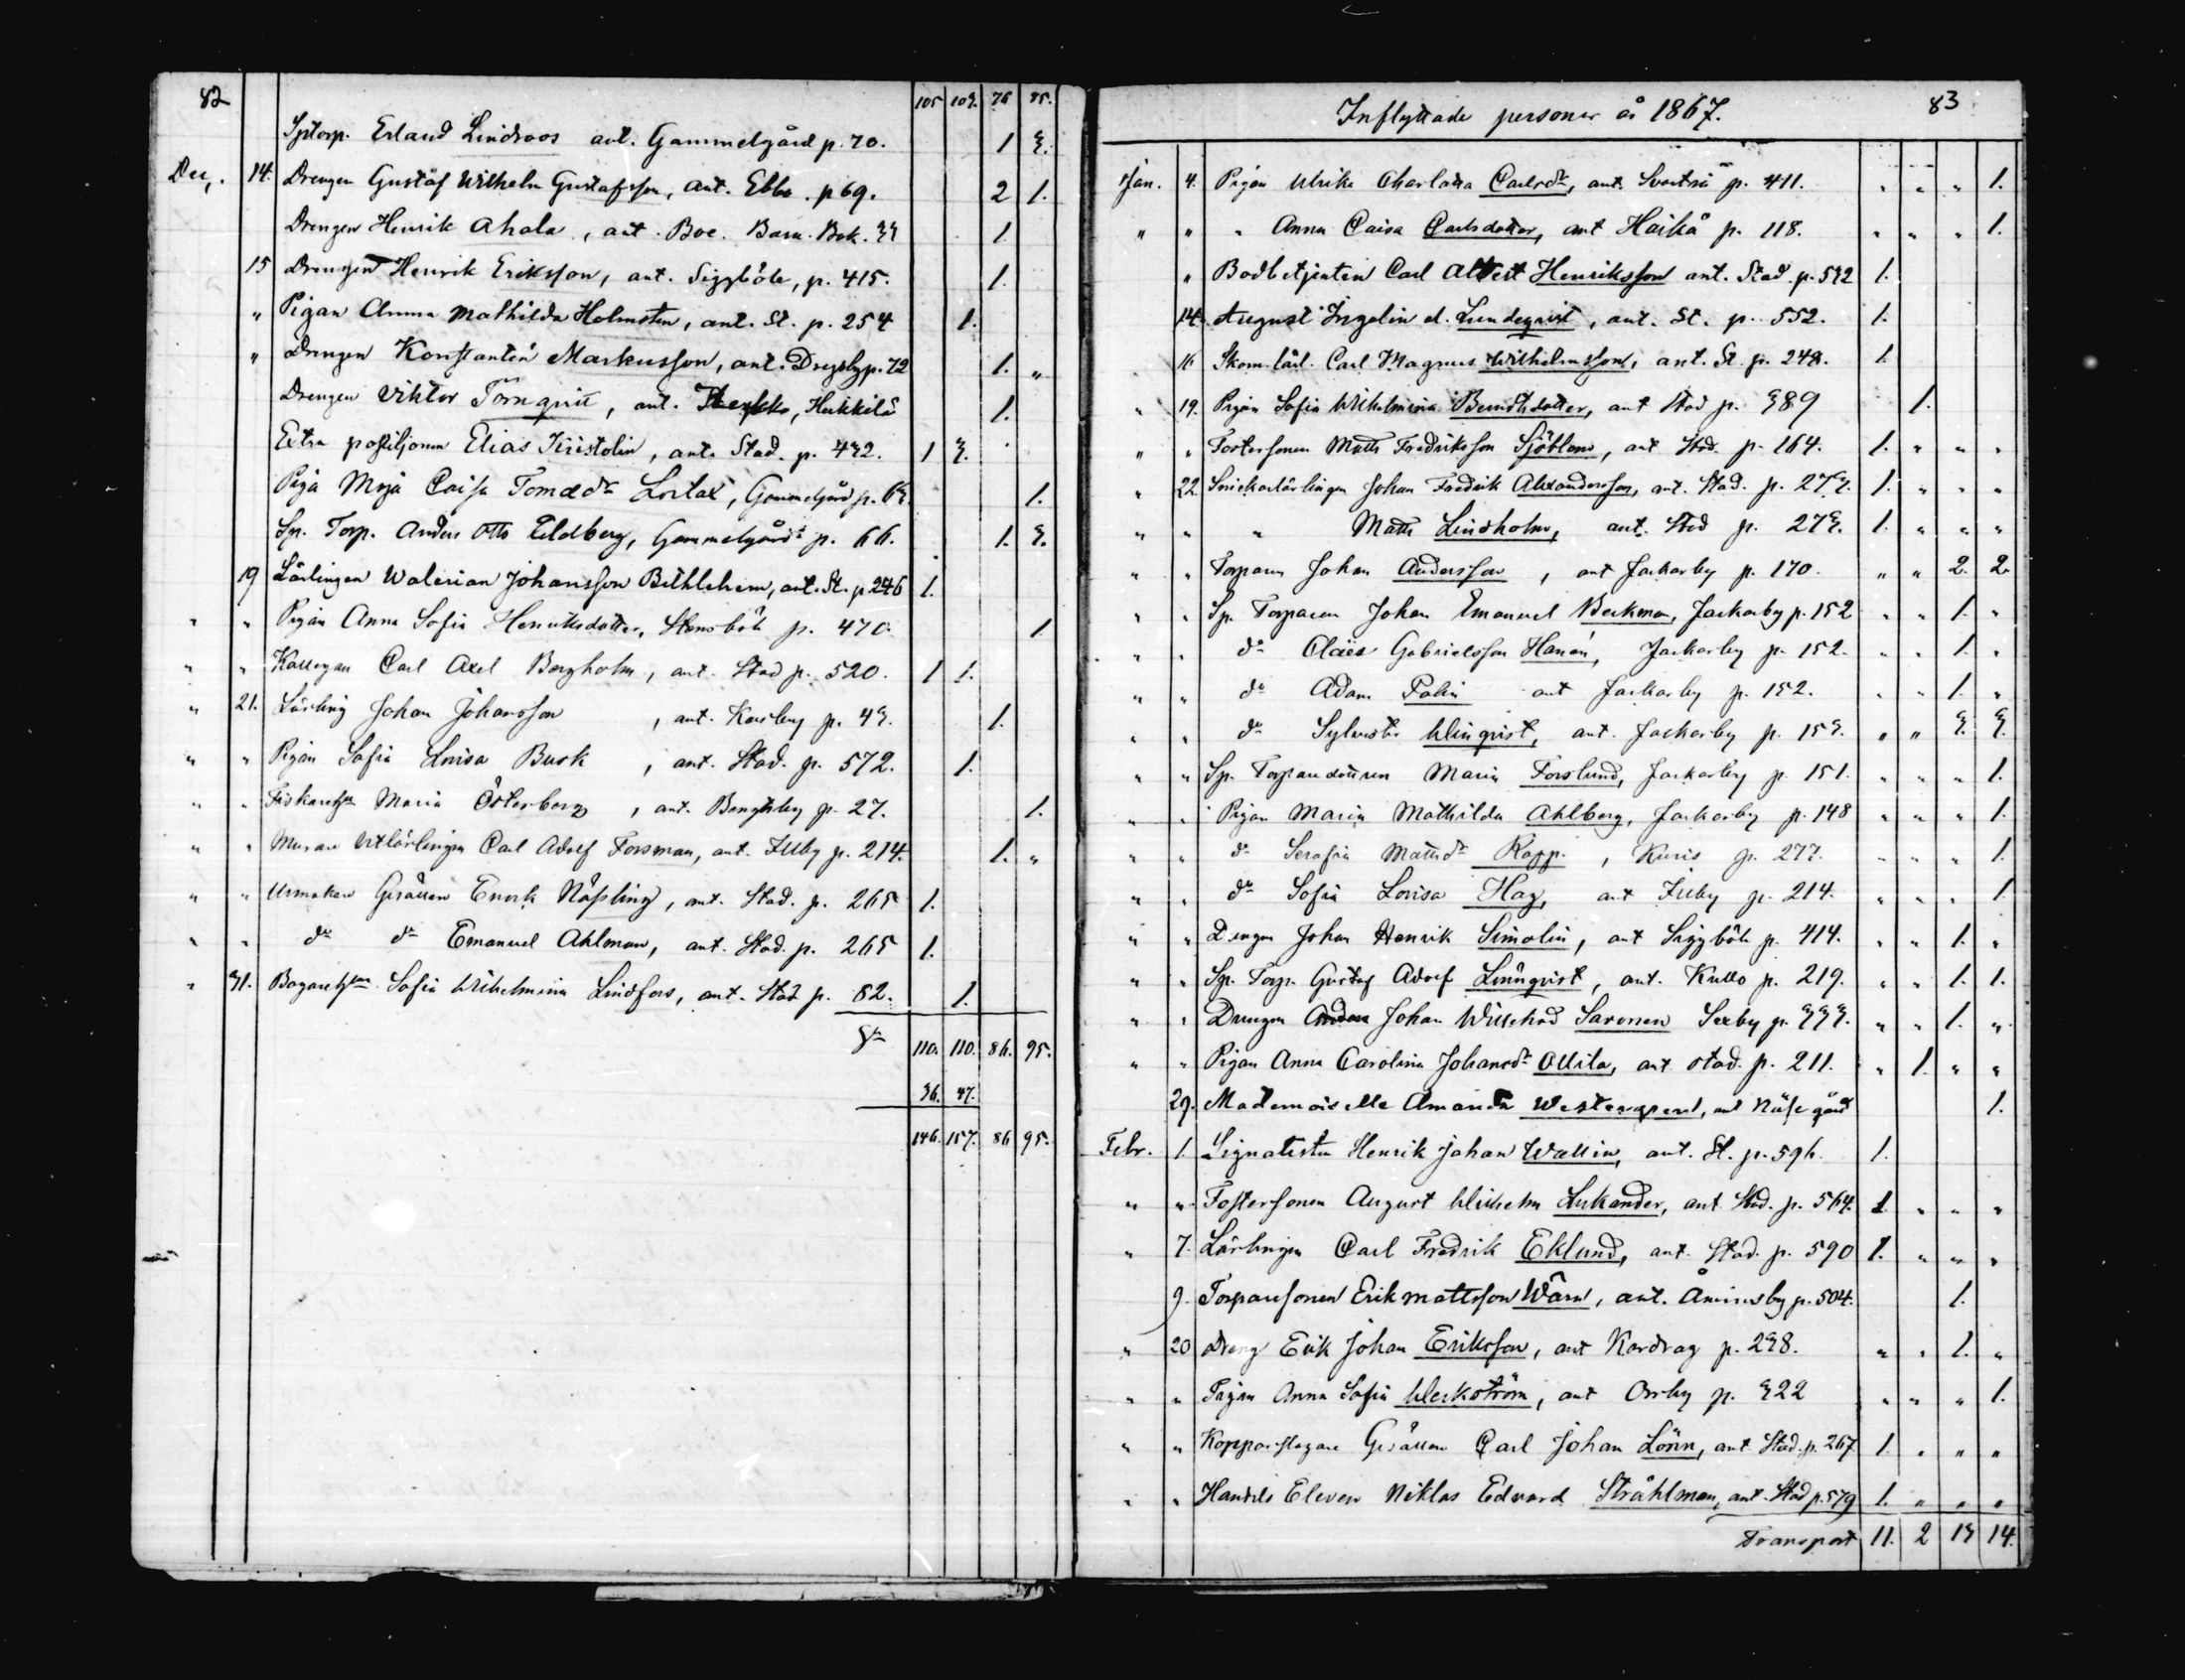 82
105 109. 76 85.
Sptorp. Erland Lindroos ant. Gammelgård p. 70. 1 3.
Dec. 14. Drengen Gustaf Wilhelm Gustafsson, ant. Ebbo. p 69. 2 1.
Drengen Henrik Ahola, ant. Boe. Barn. Bok. 33 1.
15 Drengen Henrik Eriksson, ant. Siggböle, p. 415. 1.
" Pigan Anna Mathilda Holmsten, ant. St. p. 254 1.
" Drengen Konstantin Markusson, ant. Dregsby p. 72 1. "
Drengen Viktor Törnqvist, ant. Hukkilä 1.
Extra postiljonen Elias Kristolin, ant. Stad. p. 432. 1 3.
Piga Maja Caisa Tomasdr Lorlax, Gammelgård p. 63. 1.
Sp. Torp. Anders Otto Eldberg, Gammelgård p. 66. 1. 3.
19 Lärlingen Walerian Johansson Bethlehem, ant. St. p. 246 1.
" " Pigan Anna Sofia Henriksdotter, Stensböle p. 470. 1
" " Carl Axel Bergholm, ant. Stad p. 520. 1 1.
" 21. Lärling Johan Johansson, ant. Karsby p. 43. 1.
" " Pigan Sofia Lovisa Busk, ant. Stad. p. 572. 1.
" " Maria Österberg, ant. Bengtsby p. 27. 1.
" " Murare Utlärlingen Carl Adolf Forsman, ant. Illby p. 214. 1. "
" " Urmakare Gesällen Enok Näsling, ant. Stad. p. 265 1.
" " do do Emanuel Ahlman, ant. Stad. p. 265 1.
" 31. Sofia Wilhelmina Lindfors, ant. Stad p. 82. 1.
110. 110. 86. 95.
36. 47.
146. 157. 86 95.
Inflyttade personer år 1867. 83
Jan. 4. Pigan Ulrika Charlotta Carlsdr, ant. Svartså p. 411. " " " 1.
" " " Anna Caisa Carlsdotter, ant Haikå p. 118. " " " 1.
" Bodbetjenten Carl Albert Henriksson ant. Stad. p. 532 1.
14. August Ingelin el. Lundeqvist, ant. St. p. 552. 1.
16 Skom. lärl. Carl Magnus Wilhelmsson, ant. St. p. 248. 1.
" 19. Pigan Sofia Wilhelmina Berndtsdotter, ant Stad p. 389 1.
" " Fostersonen Matts Fredriksson Sjöblom, ant Stad. p. 164. 1. " " "
" 22. Snickarlärlingen Johan Fredrik Alexandersson, ant. Stad. p. 273. 1. " " "
" " " Matts Lindholm, ant. Stad p. 273. 1. " " "
" " Torparen Johan Andersson, ant Jackarby p. 170. " " 2. 2.
" " Sp. Torparen Johan Emanuel Beckman, Jackarby p. 152 " " 1. "
" " do Claës Gabrielsson Hanén, Jackarby p. 152. " " 1. "
" " do Adam Palin ant Jackarby p. 152. " " 1. "
" " do Sylvester Winqvist, ant. Jackarby p. 153. " " 3. 3.
" " Sp. Maria Forslund, Jackarby p. 151. " " " 1.
" " Pigan Maria Mathilda Ahlberg, Jackarby p. 148 " " " 1.
" " do Serafia Mattsdr Rapp., Kuris p. 277. " " " 1.
" " do Sofia Lovisa Hag, ant Illby p. 214. " " " 1.
" " Drengen Johan Henrik Simolin, ant Siggböle p. 414. " " 1. "
" " Sp. Torp. Gustaf Adolf Lönnqvist, ant. Kullo p. 219. " " 1. 1.
" " Drengen Johan Willehad Saronen Sexby p. 333. " " 1. "
" " Pigan Anna Carolina Johansdr Ollila, ant stad. p. 211. " 1. " "
29. Mademoiselle Amanda Westergrend, ant Näse gård 1.
Febr. 1. Henrik Johan Wallin, ant. St. p. 596. 1.
" " Fostersonen August Wilhelm Lukander, ant Stad. p. 564. 1. " " "
" 7. Lärlingen Carl Fredrik Eklund, ant. Stad. p. 590 1. " " "
9. Torparesonen Erik Mattsson Wärn, ant. Åminsby p. 504. 1.
" 20 Dreng Erik Johan Eriksson, ant Kardrag p. 238. " " 1. "
" " Pigan Anna Sofia Weckström, ant Orrby p. 322 " " " 1.
" " Kopparslagare Gesällen Carl Johan Lönn, ant Stad. p. 267 1. " " "
" " Handels Eleven Niklas Edvard Stråhlman, ant. Stad p. 579 1. " " "
Transport 11. 2 13 14.